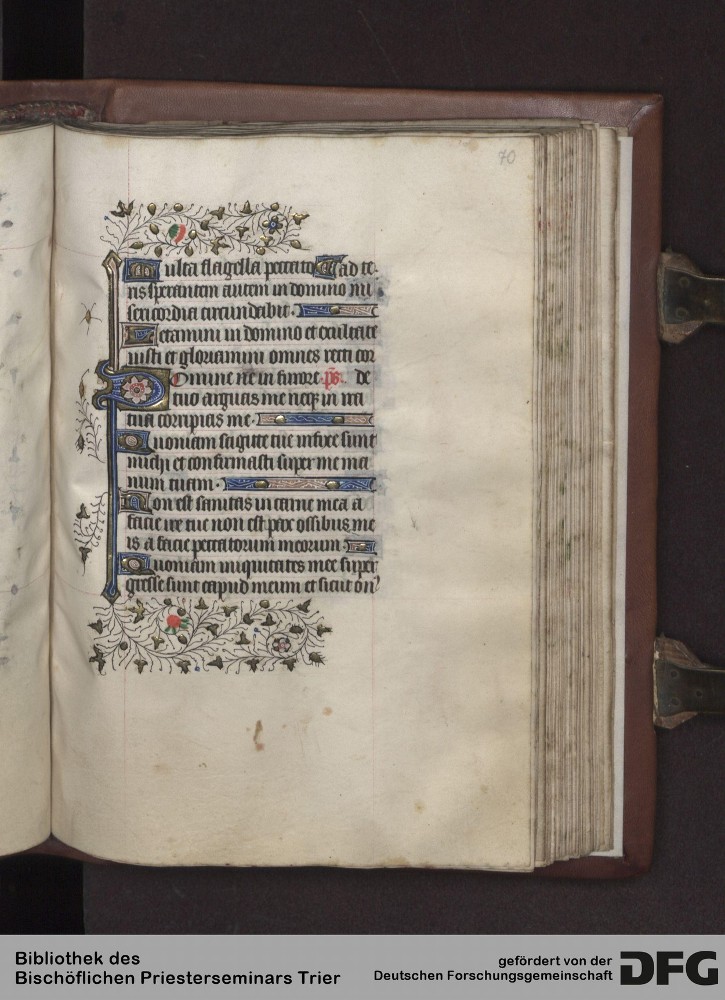 70
Multa flagella peccatoris ad te
ris sperantem autem in domino mi
sericordia circundabit.
Letamini in domino et exultate
iusti et gloriamini omnes recti cor
Domine ne in furore ps. de
tuo arguas me neqz in ira
tua corripias me.
Quoniam sagitte tue infixe sunt
michi et confirmasti super me ma
num tuam.
Non est sanitas in carne mea a
facie ire tue non est pax ossibus me
is a facie peccatorum meorum.
Quoniam iniquitates mee super
gresse sunt capud meum et sicut on
Bibliothek des
Bischöflichen Priesterseminars Trier
gefördert von der
Deutschen Forschungsgemeinschaft
DFG